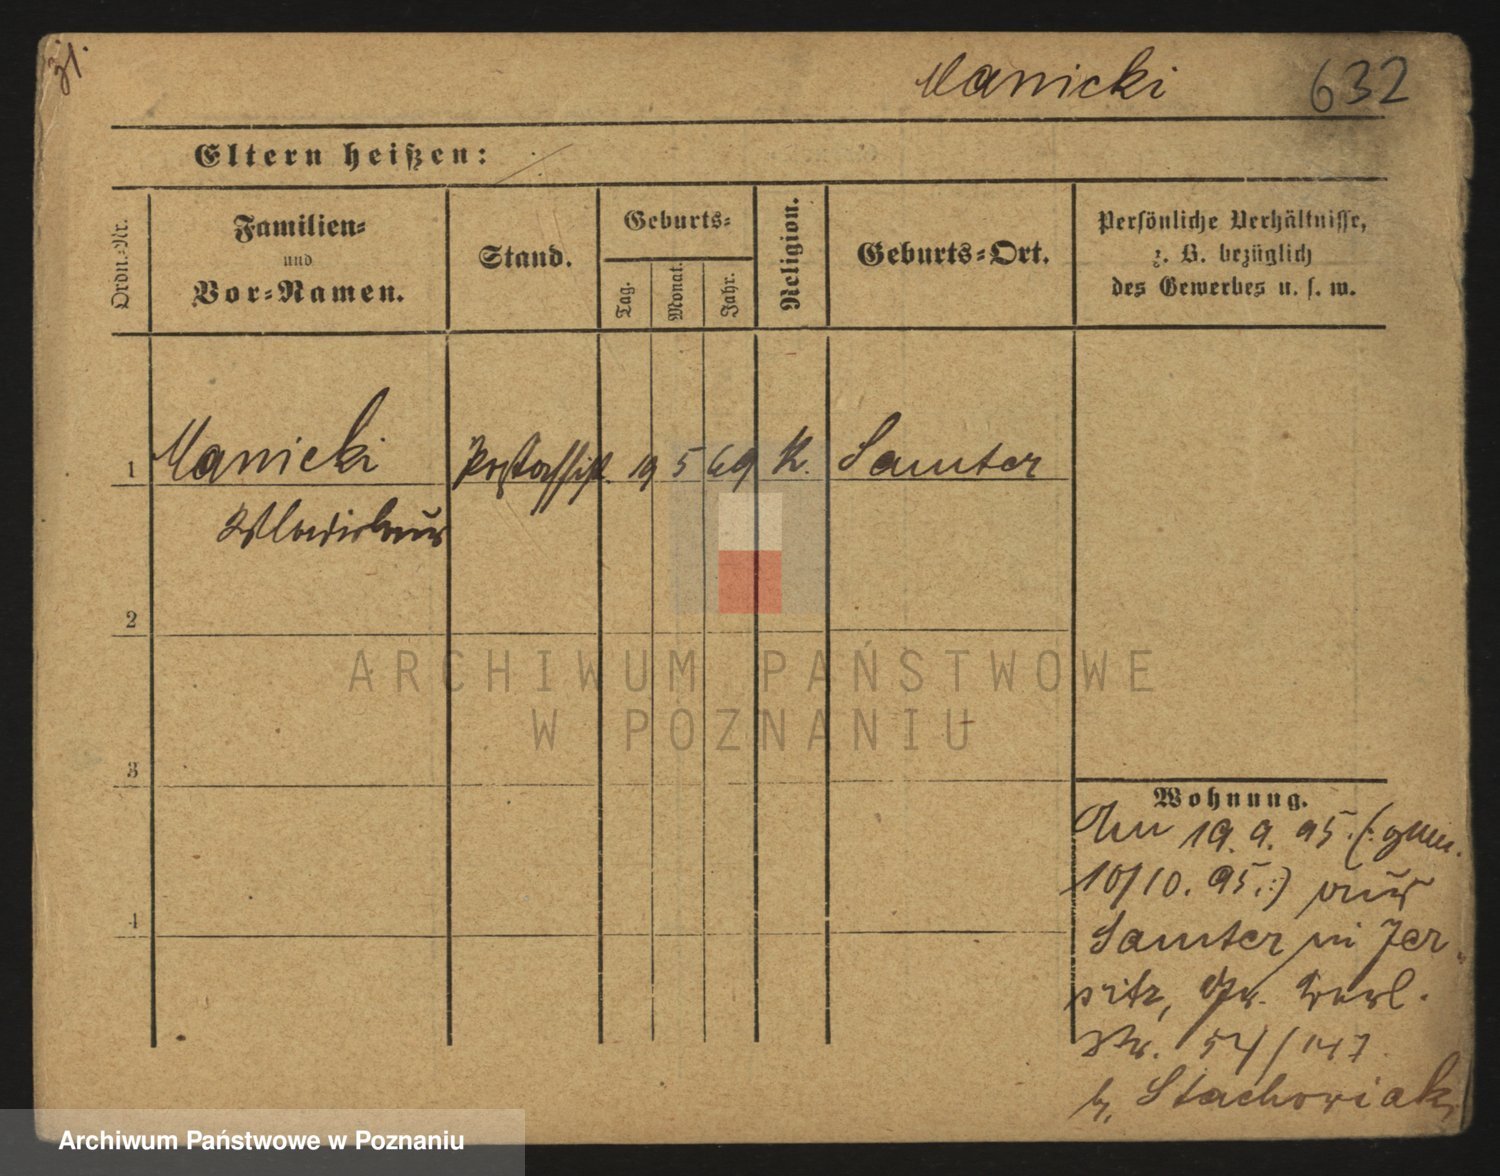 31.
Manicki 632
Eltern heißen:
Ordn.-Nr.
Familien-
und
Vor-Namen.
Stand.
Geburts-
Tag.
Monat.
Jahr.
Religion.
Geburts-Ort.
Persönliche Verhältnisse,
z. B. bezüglich
des Gewerbes u. s. w.
1 Manicki Postassist. 19 5 69 K. Samter
Wladislaus
2
3
4
Wohnung.
Am 19.9.95. (: gem.
10/10. 95. :) aus
Samter in Jer-
sitz, Gr. Berl.
Str. 54/147
b. Stachowiak
ARCHIWUM PAŃSTWOWE
W POZNANIU
Archiwum Państwowe w Poznaniu